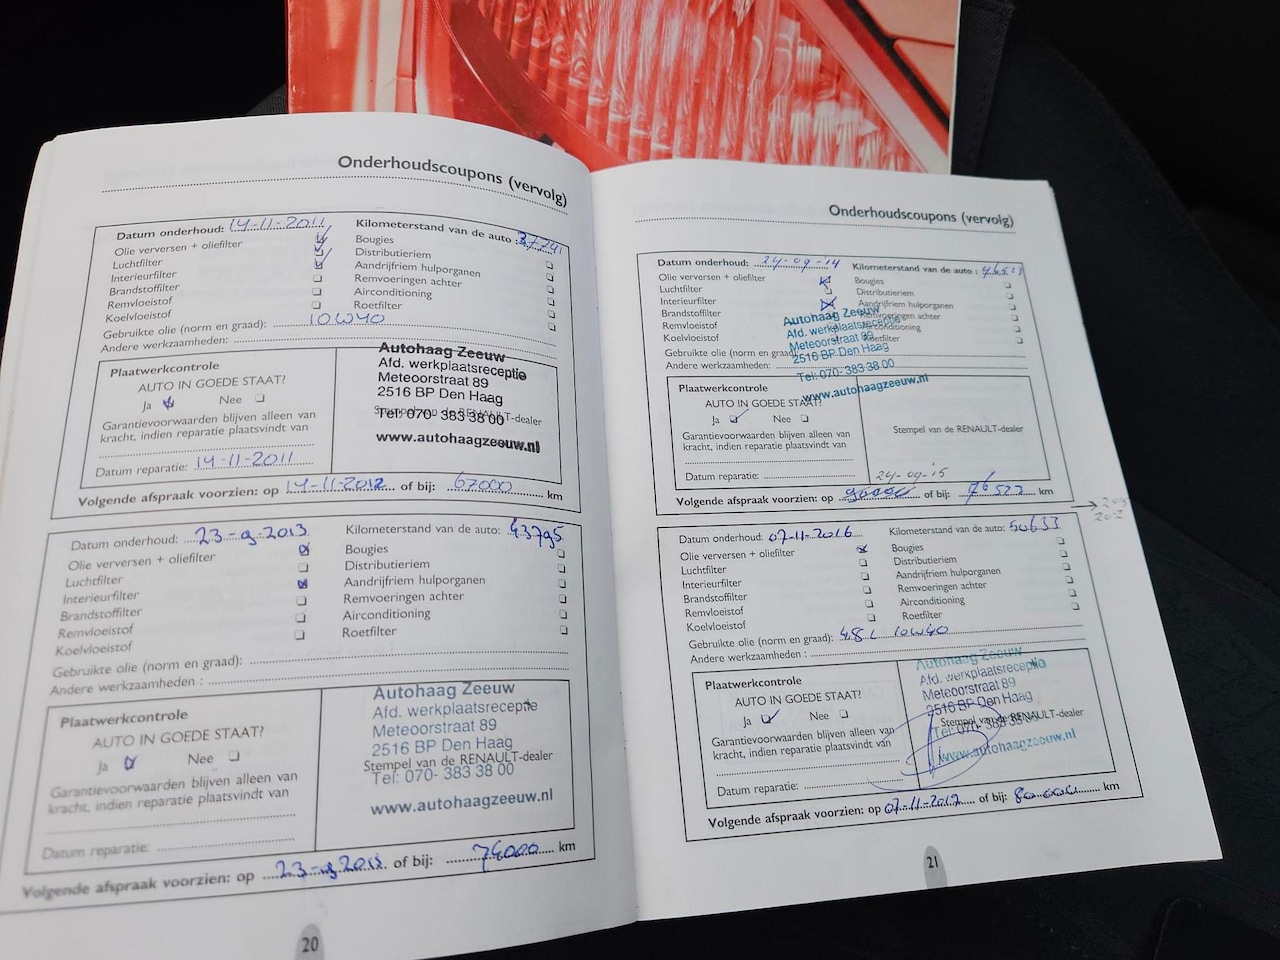 Onderhoudscoupons (vervolg)
Datum onderhoud: 14-11-2011 Kilometerstand van de auto : 37741
Olie verversen + oliefilter Bougies
Luchtfilter Distributieriem
Interieurfilter Aandrijfriem hulporganen
Brandstoffilter Remvoeringen achter
Remvloeistof Airconditioning
Koelvloeistof Roetfilter
Gebruikte olie (norm en graad): 10W40
Andere werkzaamheden:
Plaatwerkcontrole
AUTO IN GOEDE STAAT?
Ja Nee
Garantievoorwaarden blijven alleen van
kracht, indien reparatie plaatsvindt van
Datum reparatie: 14-11-2011
Autohaag Zeeuw
Afd. werkplaatsreceptie
Meteoorstraat 89
2516 BP Den Haag
Stempel van de RENAULT-dealer
Tel: 070- 383 38 00
www.autohaagzeeuw.nl
Volgende afspraak voorzien: op 14-11-2012 of bij: 67000 km
Datum onderhoud: 23-9-2013 Kilometerstand van de auto: 43795
Olie verversen + oliefilter Bougies
Luchtfilter Distributieriem
Interieurfilter Aandrijfriem hulporganen
Brandstoffilter Remvoeringen achter
Remvloeistof Airconditioning
Koelvloeistof Roetfilter
Gebruikte olie (norm en graad):
Andere werkzaamheden :
Plaatwerkcontrole
AUTO IN GOEDE STAAT?
Ja Nee
Garantievoorwaarden blijven alleen van
kracht, indien reparatie plaatsvindt van
Datum reparatie:
Autohaag Zeeuw
Afd. werkplaatsreceptie
Meteoorstraat 89
2516 BP Den Haag
Stempel van de RENAULT-dealer
Tel: 070- 383 38 00
www.autohaagzeeuw.nl
Volgende afspraak voorzien: op of bij: 74000 km
20
Onderhoudscoupons (vervolg)
Datum onderhoud: 24-09-14 Kilometerstand van de auto : 46523
Olie verversen + oliefilter Bougies
Luchtfilter Distributieriem
Interieurfilter Aandrijfriem hulporganen
Brandstoffilter Remvoeringen achter
Remvloeistof Airconditioning
Koelvloeistof Roetfilter
Gebruikte olie (norm en graad)
Andere werkzaamheden:
Autohaag Zeeuw
Afd. werkplaatsreceptie
Meteoorstraat 89
2516 BP Den Haag
Tel: 070- 383 38 00
www.autohaagzeeuw.nl
Plaatwerkcontrole
AUTO IN GOEDE STAAT?
Ja Nee
Garantievoorwaarden blijven alleen van
kracht, indien reparatie plaatsvindt van
Stempel van de RENAULT-dealer
Datum reparatie: 24-09-'15
Volgende afspraak voorzien: op of bij: 76523 km
Datum onderhoud: 07-11-2016 Kilometerstand van de auto: 50633
Olie verversen + oliefilter Bougies
Luchtfilter Distributieriem
Interieurfilter Aandrijfriem hulporganen
Brandstoffilter Remvoeringen achter
Remvloeistof Airconditioning
Koelvloeistof Roetfilter
Gebruikte olie (norm en graad): 4.8 L 10W40
Andere werkzaamheden :
Plaatwerkcontrole
AUTO IN GOEDE STAAT?
Ja Nee
Garantievoorwaarden blijven alleen van
kracht, indien reparatie plaatsvindt van
Datum reparatie:
Autohaag Zeeuw
Afd. werkplaatsreceptie
Meteoorstraat 89
2516 BP Den Haag
Stempel van de RENAULT-dealer
Tel: 070- 383 38 00
www.autohaagzeeuw.nl
Volgende afspraak voorzien: op 07-11-2017 of bij: 80.000 km
21